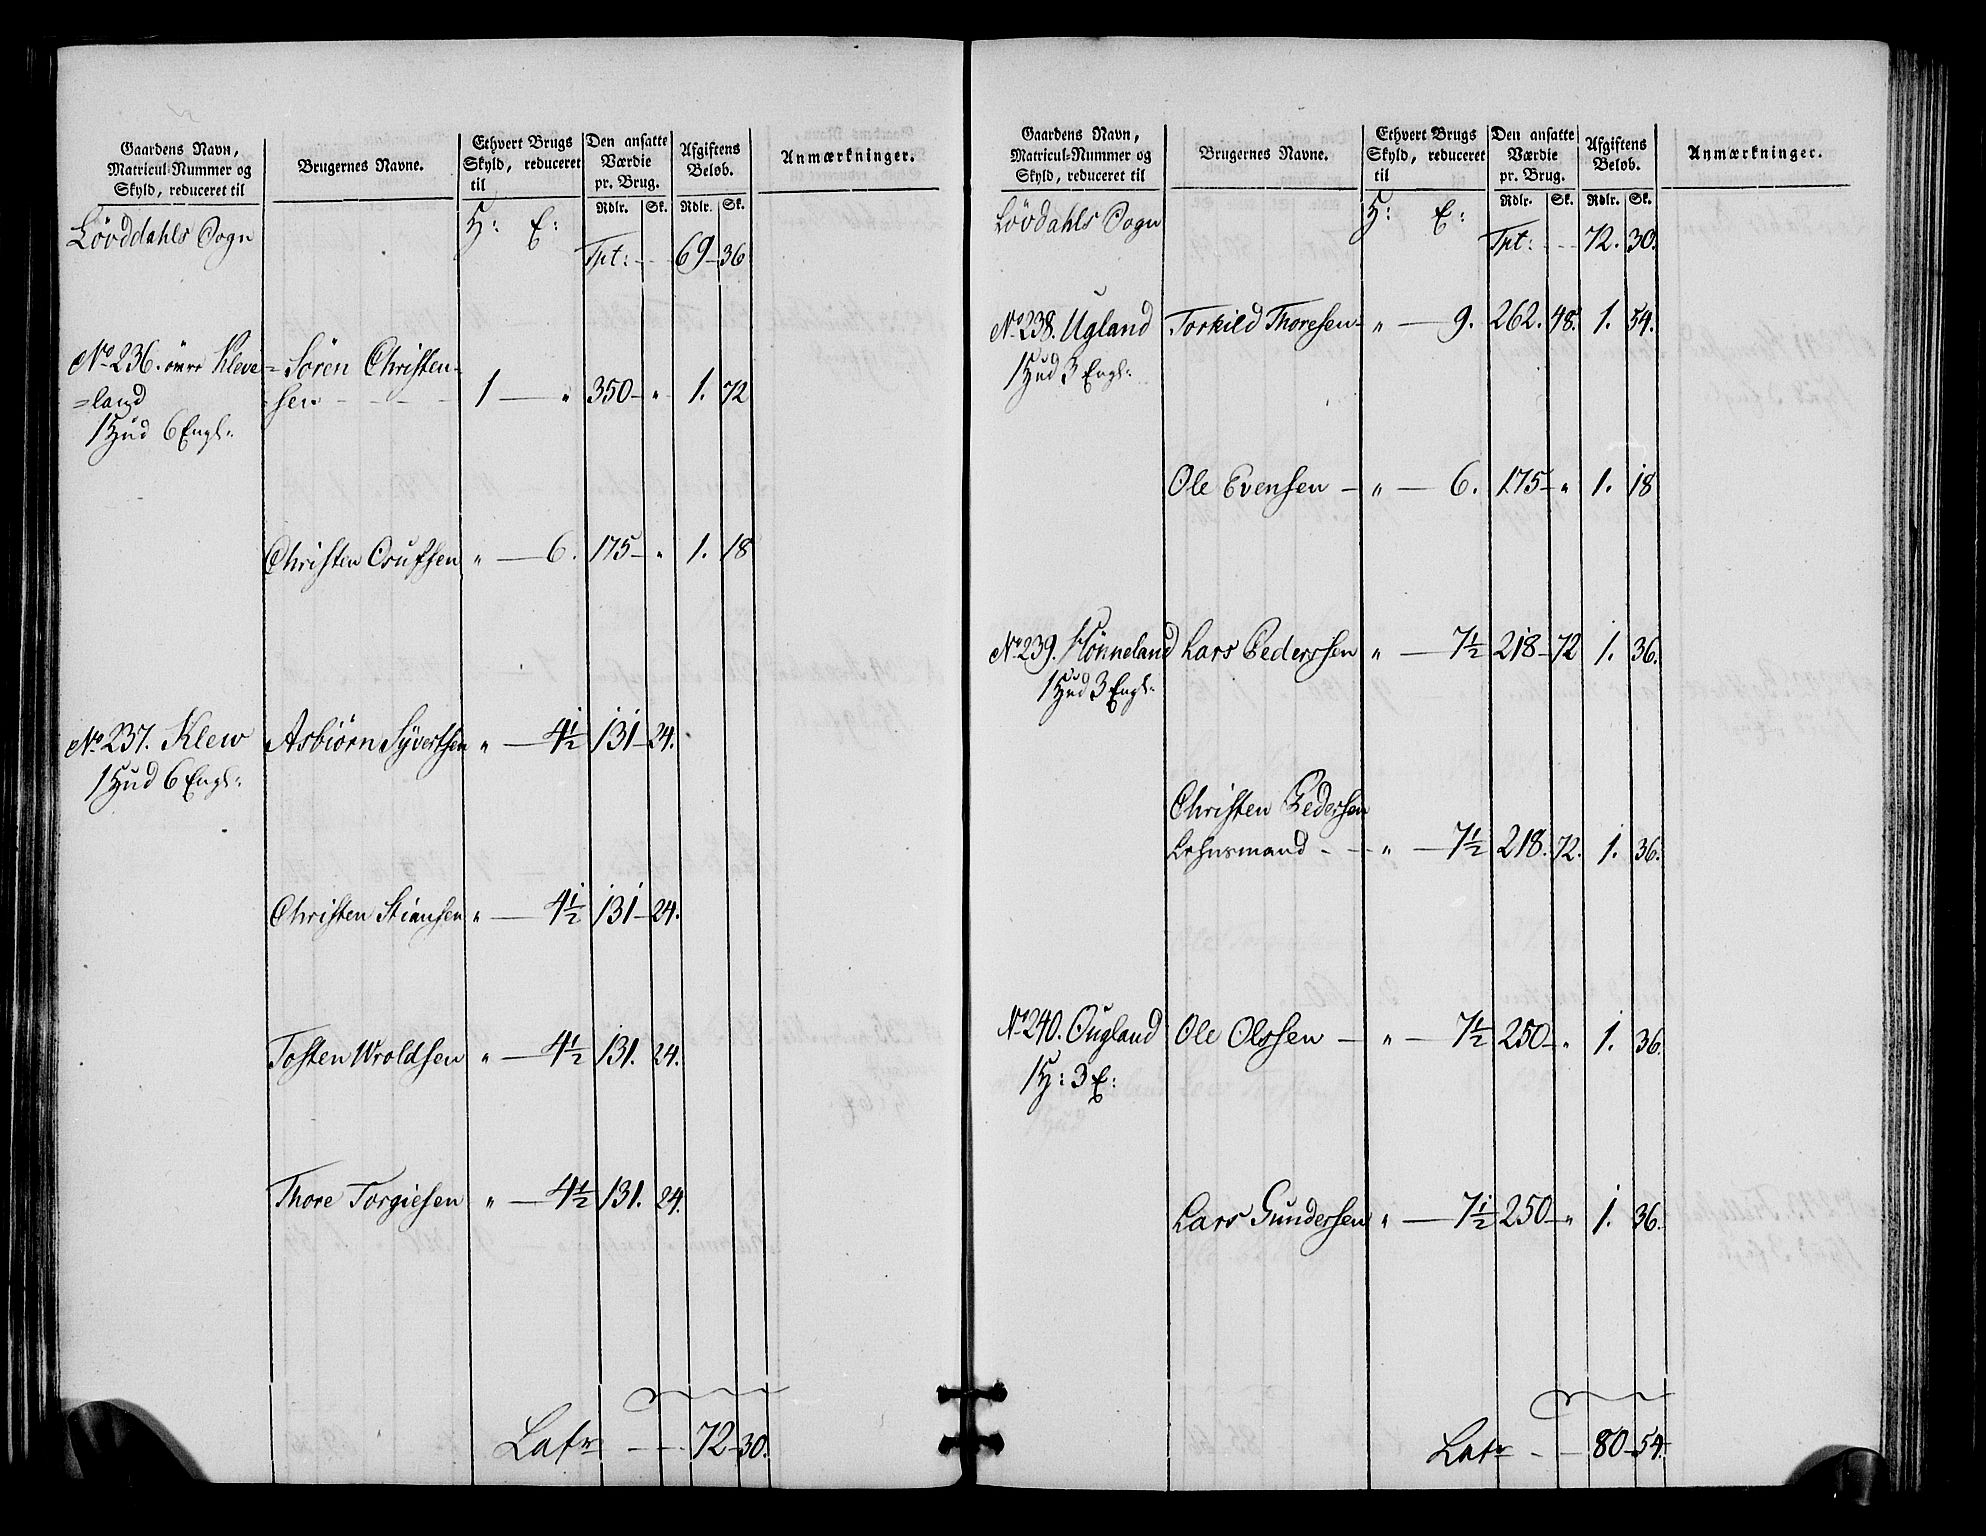 Gaardens Navn,
Matricul-Nummer og
Skyld, reduceret til
Brugernes Navne.
Ethvert Brugs
Skyld, reduceret
til
Den ansatte
Værdie
pr. Brug.
Rdlr. Sk.
Afgiftens
Beløb.
Rdlr. Sk.
Anmærkninger.
Lövddahls Sogn H: E: Tpt: - - 69 - 36
No 236. övre Kleve = Sören Christen-
=land =sen - - - 1 — " 350 - " 1. 72
1 Hud 6 Engl:
Christen " — 6. 175 - " 1. 18
No 237. Klew Asbiörn Syvertsen " — 4½ 131 - 24.
1 Hud 6 Engl:
Christen Stiansen " — 4½ 131 - 24.
Tosten Wroldsen " — 4½ 131. 24.
Thore Torgiesen " — 4½ 131. 24.
Latr - - 72 - 30.
Gaardens Navn,
Matricul-Nummer og
Skyld, reduceret til
Brugernes Navne.
Ethvert Brugs
Skyld, reduceret
til
Den ansatte
Værdie
pr. Brug.
Rdlr. Sk.
Afgiftens
Beløb.
Rdlr. Sk.
Anmærkninger.
Lövdahls Sogn H: E: Tpt: - - 72. 30.
No 238. Ugland Torkild Thoresen - " — 9. 262. 48. 1. 54.
1 Hud 3 Engl:
Ole Evensen - " — 6. 175 - " 1. 18
No 239. Hönneland Lars Pederssen " — 7½ 218 - 72 1. 36.
1 Hud 3 Engl:
Christen Pedersen
Lehnsmand - - " — 7½ 218. 72. 1. 36.
No 240. Ougland Ole Olssen - " — 7½ 250 - " 1. 36.
1 H: 3 E:
Lars Gundersen " — 7½ 250 - " 1. 36.
Latr - - 80 - 54.